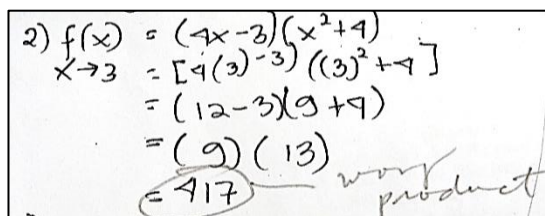 2) f(x) = (4x-3)(x²+4)
x→3 = [4(3)-3) ((3)²+4]
= (12-3)(9+4)
= (9)(13)
= 417
wrong product